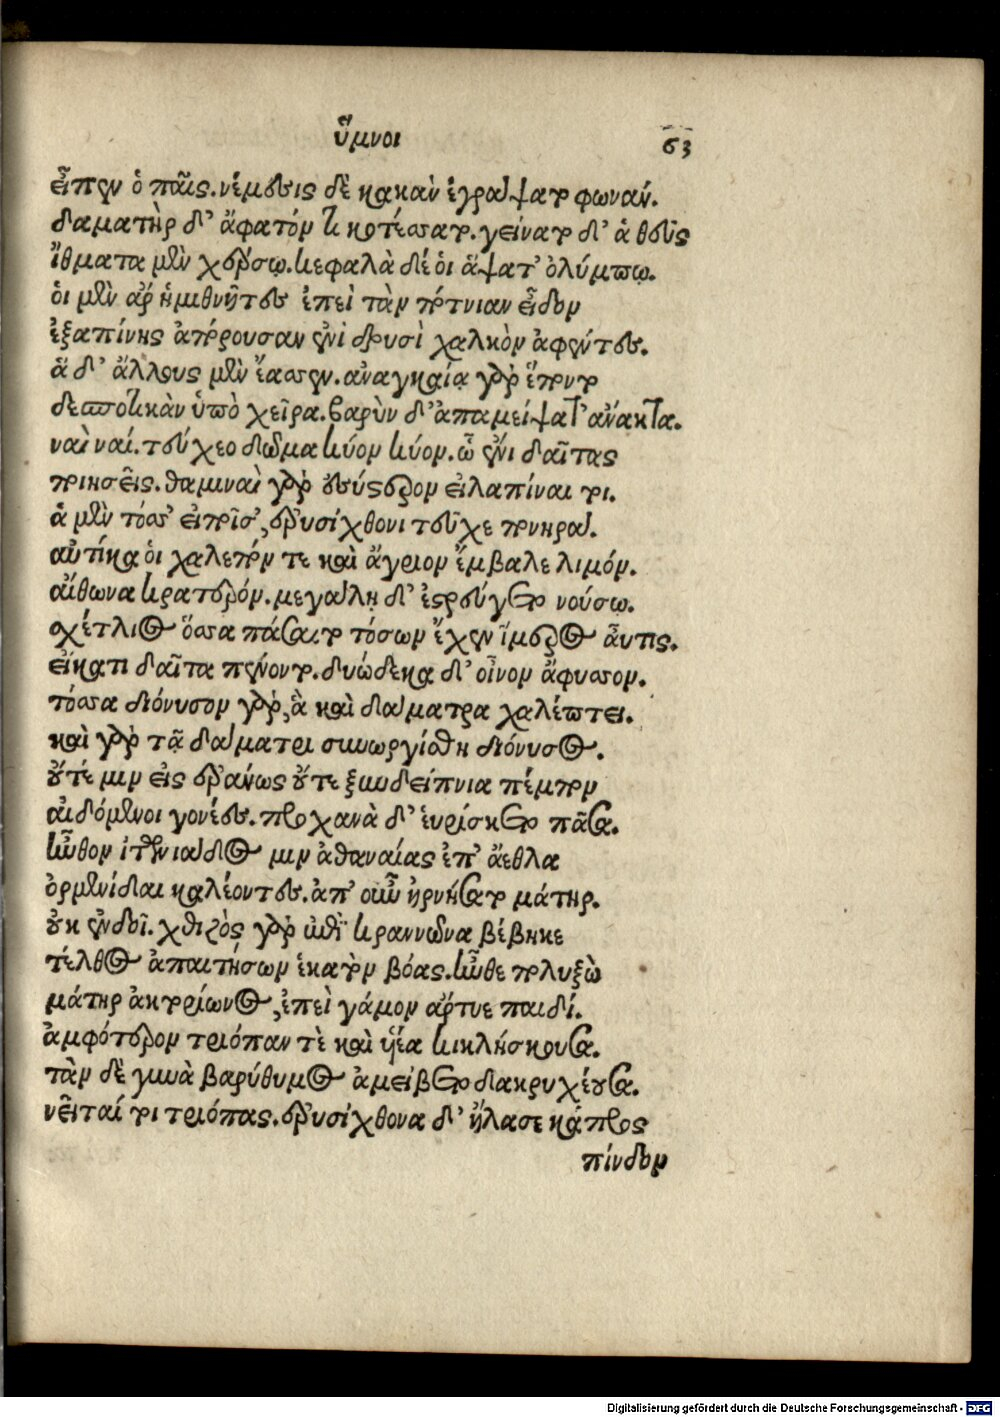 ὕμνοι 63
εἶπεν ὁ παῖς. νέμεσις δὲ κακὰν ἐγράψατο φωνάν.
δαματὴρ δ' ἄφατόν τι κοτέσσατο. γείνατο δ' ἁ θεῦς
ἴθματα μὲν χέρσω. κεφαλὰ δέ οἱ ἅψατ' ὀλύμπω.
οἱ μὲν ἄρ ἡμιθνῆτες ἐπεὶ τὰν πότνιαν εἶδον
ἐξαπίνης ἀπόρουσαν ἐνὶ δρυσὶ χαλκὸν ἀφέντες.
ἃ δ' ἄλλους μὲν ἔασσεν. ἀναγκαίᾳ γὰρ ἕποντο
δεσποτικὰν ὑπὸ χεῖρα. βαρὺν δ' ἀπαμείψατ' ἄνακτα.
ναὶ ναί. τεύχεο δῶμα κύον κύον. ὧ ἔνι δαῖτας
ποιησεῖς. θαμιναὶ γὰρ ἐς ὕστερον εἰλαπίναι τοι.
ἁ μὲν τόσσ' εἰποῖσ', ἐρυσίχθονι τεῦχε πονηρά.
αὐτίκα οἱ χαλεπόν τε καὶ ἄγριον ἔμβαλε λιμόν.
αἴθωνα κρατερόν. μεγάλῃ δ' ἐστρεύγετο νούσω.
σχέτλιος ὅσσα πάσαιτο τόσων ἔχεν ἵμερος αὖτις.
εἴκατι δαῖτα πένοντο. δυώδεκα δ' οἶνον ἄφυσσον.
τόσσα διόνυσον γὰρ, ἃ καὶ δάματρα χαλέπτει.
καὶ γὰρ τᾷ δάματρι συνωργίσθη διόνυσος.
οὔτέ μιν εἰς ἐράνως οὔτε ξυνδείπνια πέμπον
αἰδόμενοι γονέες. προχανὰ δ' εὑρίσκετο πᾶσα.
ἦνθον ἰτωνιάδος μιν ἀθαναίας ἐπ' ἄεθλα
ὀρμενίδαι καλέοντες. ἀπ' οὖν ἠρνήσατο μάτηρ.
οὐκ ἔνδοι. χθιζὸς γὰρ ἐπὶ κραννῶνα βέβηκε
τέλθος ἀπαιτήσων ἑκατὸν βόας. ἦνθε πολυξὼ
μάτηρ ἀκτορίωνος, ἐπεὶ γάμον ἄρτυε παιδί.
ἀμφότερον τριόπαν τὲ καὶ ὑἷα κικλήσκουσα.
τὰν δὲ γυνὰ βαρύθυμος ἀμείβετο δακρυχέουσα.
νεῖταί τοι τριόπας. ἐρυσίχθονα δ' ἤλασε κάπρος
πίνδον
Digitalisierung gefördert durch die Deutsche Forschungsgemeinschaft - DFG